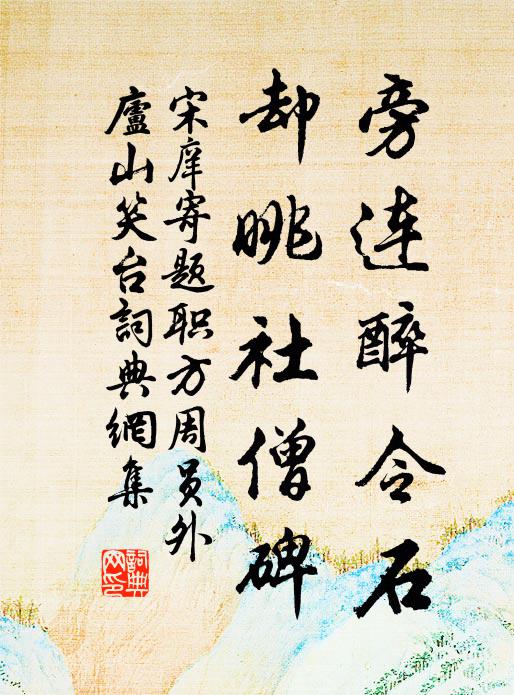 旁连醉令石
却眺社僧碑
宋庠寄题职方周员外
廬山笑台詞典網集
詞典网印